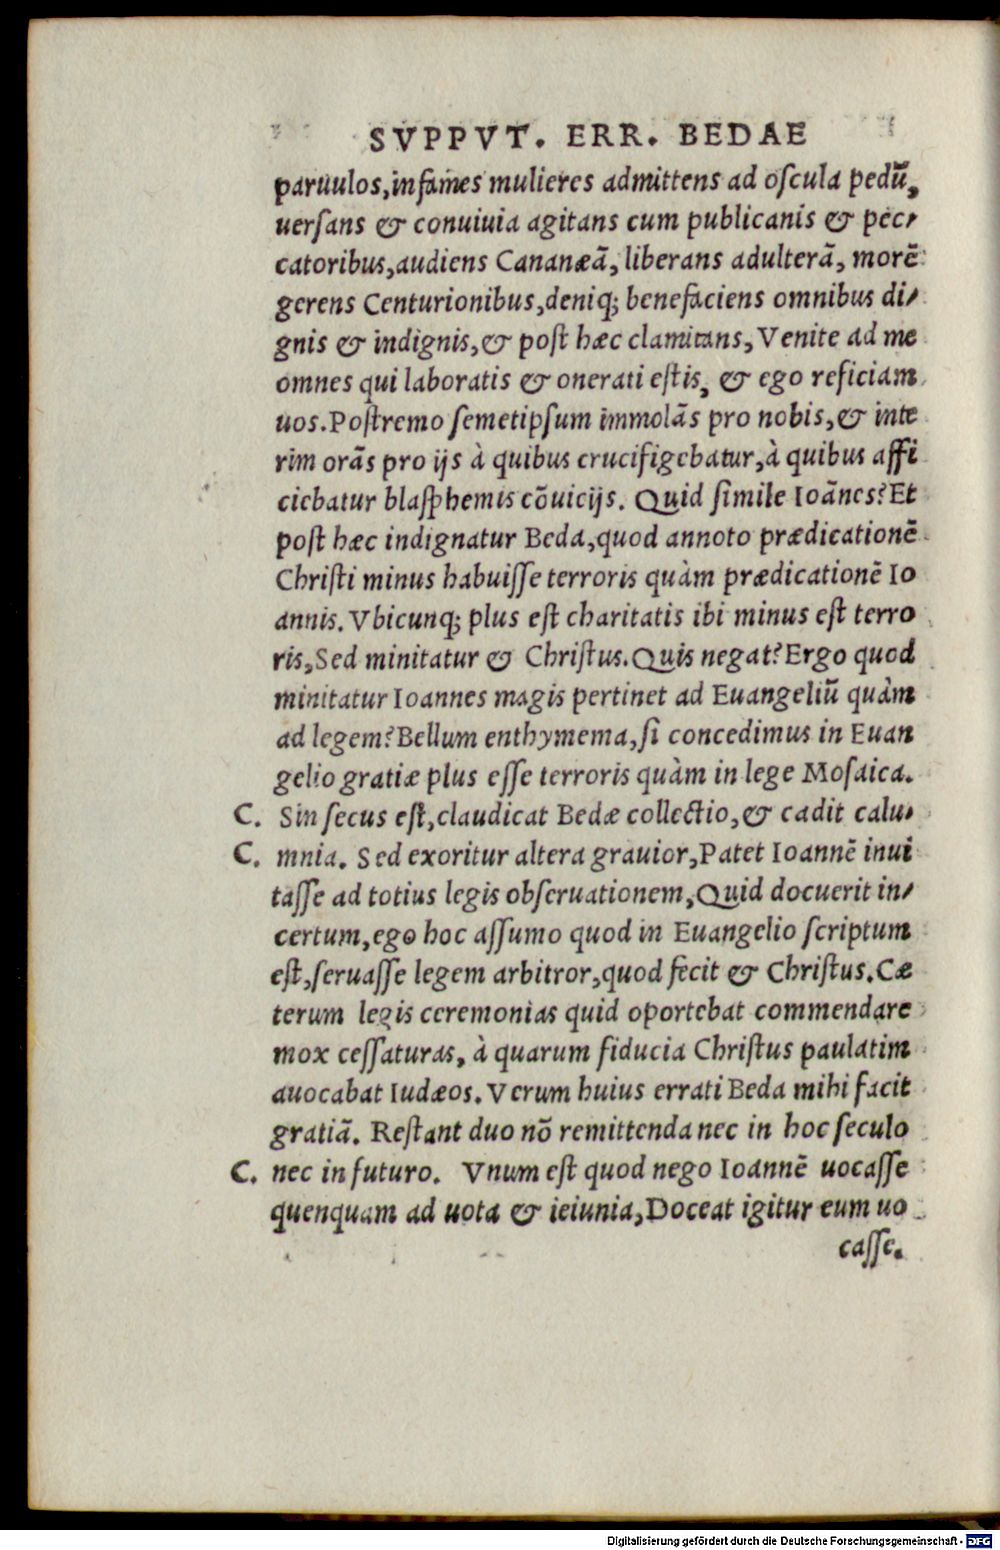 SVPPVT. ERR. BEDAE
paruulos, infames mulieres admittens ad oſcula pedū,
uerſans & conuiuia agitans cum publicanis & pec-
catoribus, audiens Cananæā, liberans adulterā, morē
gerens Centurionibus, deniq; benefaciens omnibus di-
gnis & indignis, & poſt hæc clamitans, Venite ad me
omnes qui laboratis & onerati eſtis, & ego reficiam
uos. Poſtremo ſemetipſum immolās pro nobis, & inte
rim orās pro ijs à quibus crucifigebatur, à quibus affi
ciebatur blaſphemis cōuicijs. Quid ſimile Ioānes? Et
poſt hæc indignatur Beda, quod annoto prædicationē
Chriſti minus habuiſſe terroris quàm prædicationē Io
annis. Vbicunq; plus eſt charitatis ibi minus eſt terro
ris, Sed minitatur & Chriſtus. Quis negat? Ergo quod
minitatur Ioannes magis pertinet ad Euangeliū quàm
ad legem? Bellum enthymema, ſi concedimus in Euan
gelio gratiæ plus eſſe terroris quàm in lege Moſaica.
C. Sin ſecus eſt, claudicat Bedæ collectio, & cadit calu-
C. mnia. Sed exoritur altera grauior, Patet Ioannē inui
taſſe ad totius legis obſeruationem, Quid docuerit in-
certum, ego hoc aſſumo quod in Euangelio ſcriptum
eſt, ſeruaſſe legem arbitror, quod fecit & Chriſtus. Cæ
terum legis ceremonias quid oportebat commendare
mox ceſſaturas, à quarum fiducia Chriſtus paulatim
auocabat Iudæos. Verum huius errati Beda mihi facit
gratiā. Reſtant duo nō remittenda nec in hoc ſeculo
C. nec in futuro. Vnum eſt quod nego Ioannē uocaſſe
quenquam ad uota & ieiunia, Doceat igitur eum uo
caſſe.
Digitalisierung gefördert durch die Deutsche Forschungsgemeinschaft - DFG